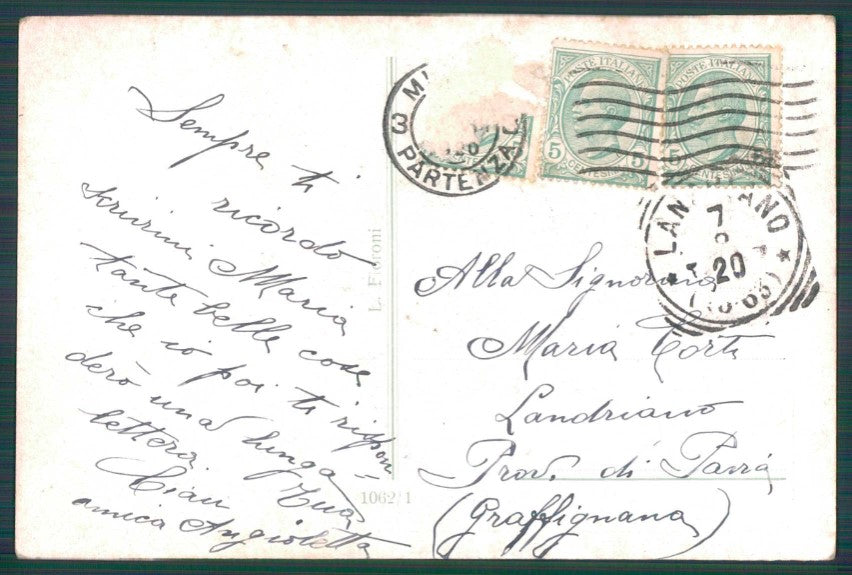 Sempre ti
ricordo
scrivimi Maria
tante belle cose
che io poi ti rispon=
derò una lunga
lettera. Tua
Ciau
amica Angioletta
L. Fieroni
1062/1
3 PARTENZA
POSTE ITALIANE
5 CENTESIMI 5
POSTE ITALIANE
5 CENTESIMI
LANDRIANO
7
20
Alla Signorina
Maria Corti
Landriano
Prov. di Pavia
(Graffignana)